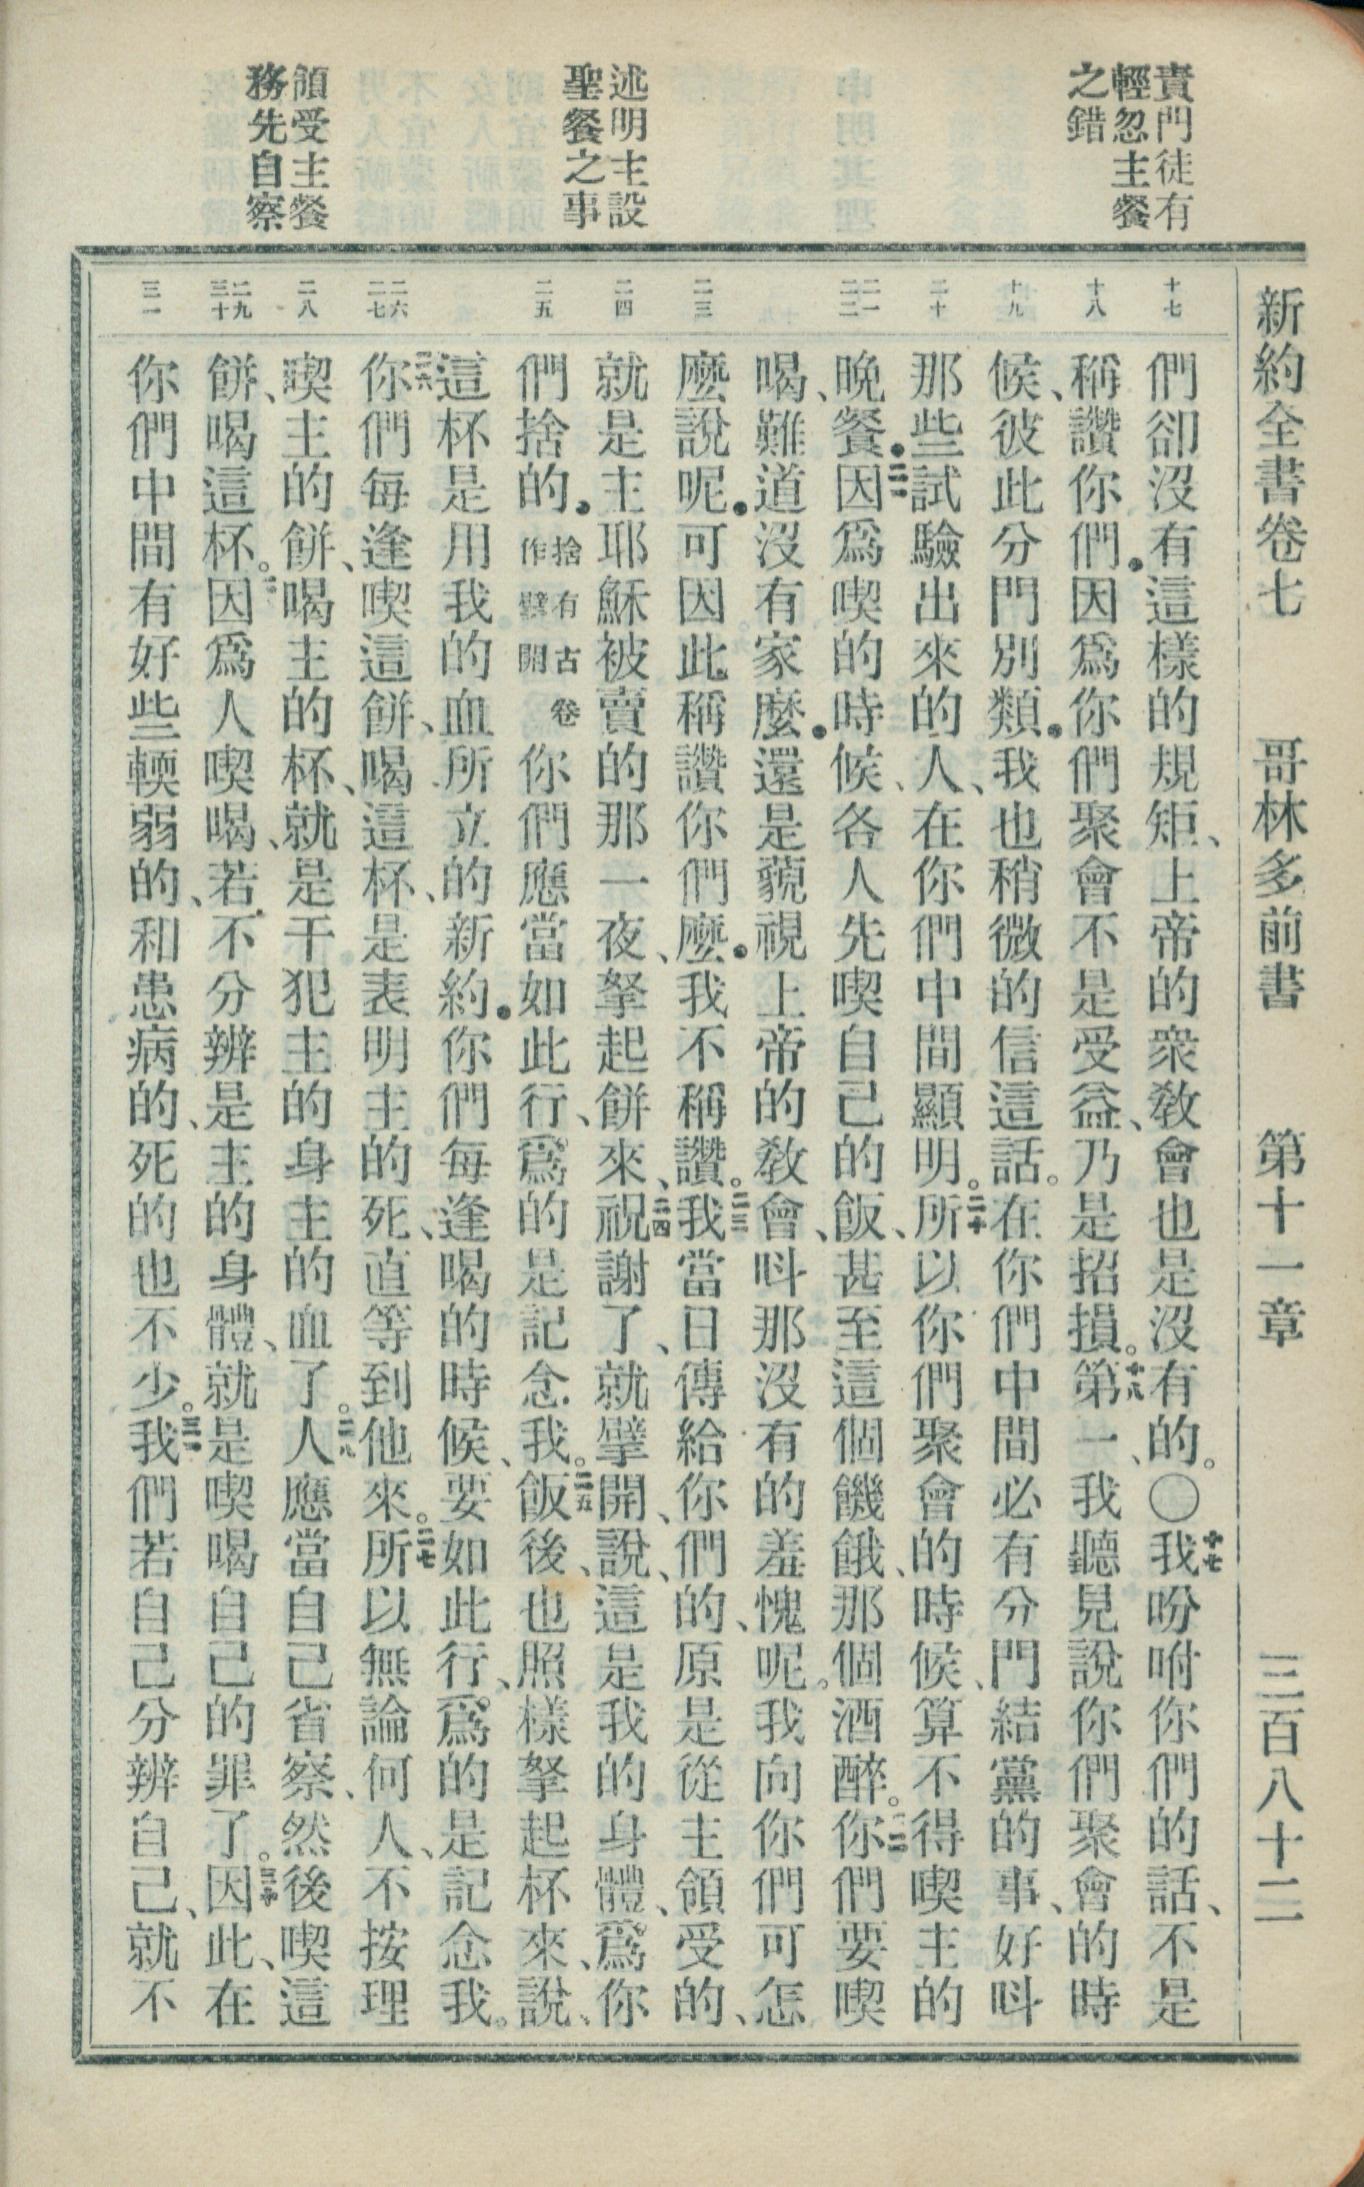 新約全書卷七　哥林多前書　第十一章　三百八十二
責門徒有
輕忽主餐
之錯
述明主設
聖餐之事
領受主餐
務先自察
十七
十八
十九
二十
二一
二二
二三
二四
二五
二六
二七
二八
二九
三十
三一
們卻沒有這樣的規矩、上帝的衆敎會也是沒有的。〇十七我吩咐你們的話、不是
稱讚你們．因爲你們聚會不是受益、乃是招損。十八第一、我聽見說你們聚會的時
候、彼此分門別類．我也稍微的信這話。在你們中間必有分門結黨的事、好呌
那些試驗出來的人、在你們中間顯明。二十所以你們聚會的時候、算不得喫主的
晚餐．二一因爲喫的時候、各人先喫自己的飯、甚至這個饑餓、那個酒醉。二二你們要喫
喝、難道沒有家麼．還是藐視上帝的敎會、呌那沒有的羞愧呢。我向你們可怎
麼說呢．可因此稱讚你們麼．我不稱讚。二三我當日傳給你們的、原是從主領受的、
就是主耶穌被賣的那一夜、拏起餅來、二四祝謝了、就擘開、說、這是我的身體、爲你
們捨的．捨有古卷作擘開你們應當如此行、爲的是記念我。二五飯後、也照樣拏起杯來、說、
這杯是用我的血所立的新約．你們每逢喝的時候、要如此行、爲的是記念我。
二六你們每逢喫這餅、喝這杯、是表明主的死、直等到他來。二七所以無論何人、不按理
喫主的餅、喝主的杯、就是干犯主的身主的血了。二八人應當自己省察、然後喫這
餅、喝這杯。二九因爲人喫喝、若不分辨是主的身體、就是喫喝自己的罪了。三十因此、在
你們中間有好些輭弱的、和患病的、死的也不少。三一我們若自己分辨自己、就不